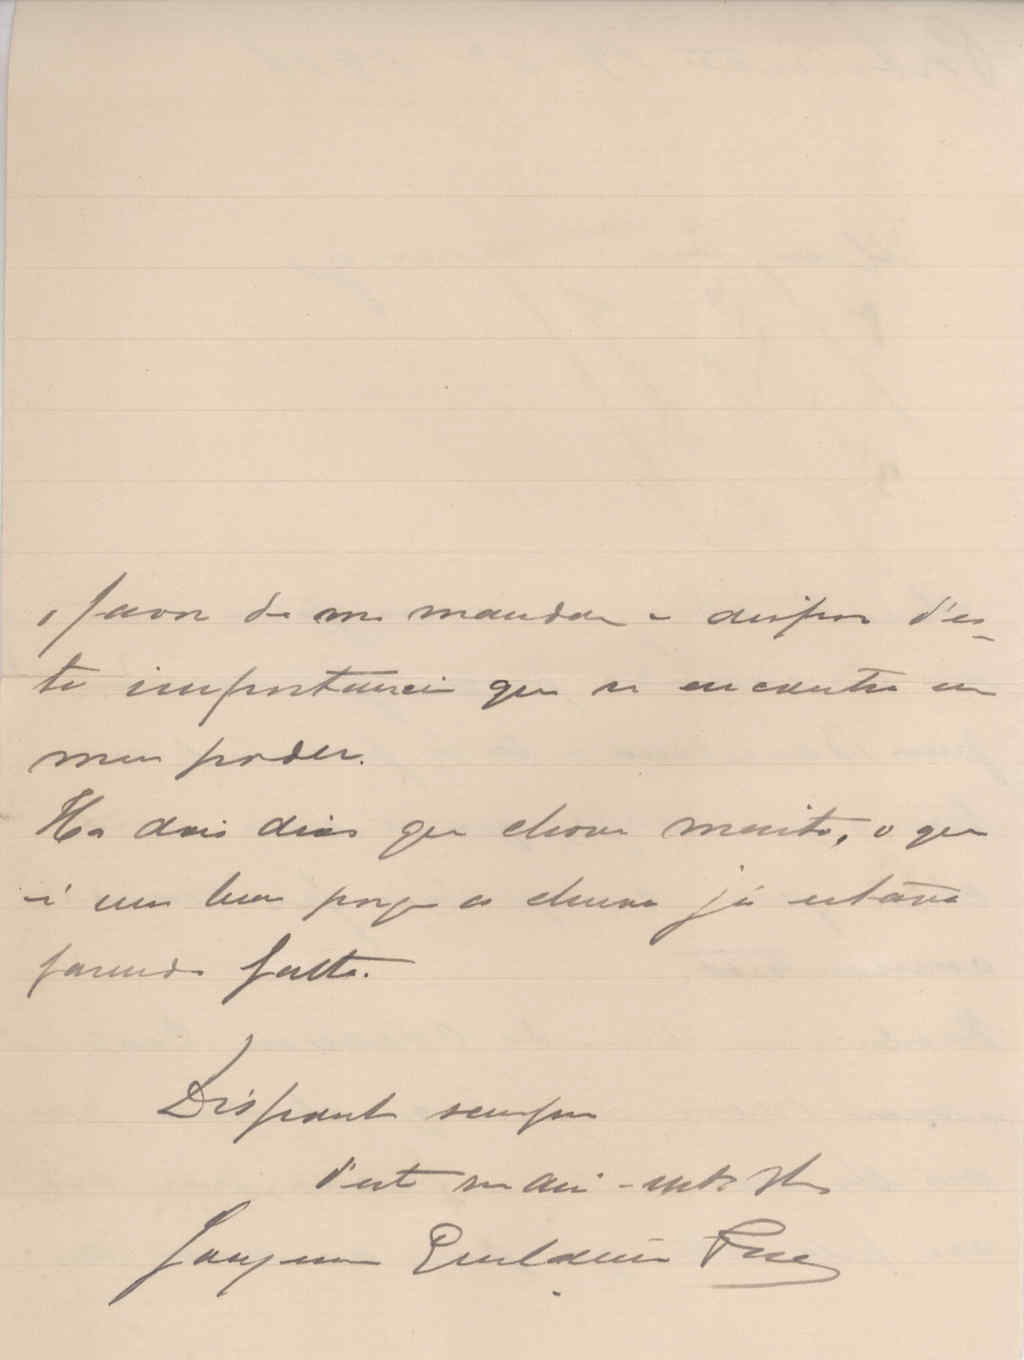 o favor de me mandar a dispor d'es-
ta importancia que se encontra em
meu poder.
Ha dois dias que chove muito, o que
é um bem porq a chuva já estava
fazendo falta.
Disponha sempre
d'est
Joaquim